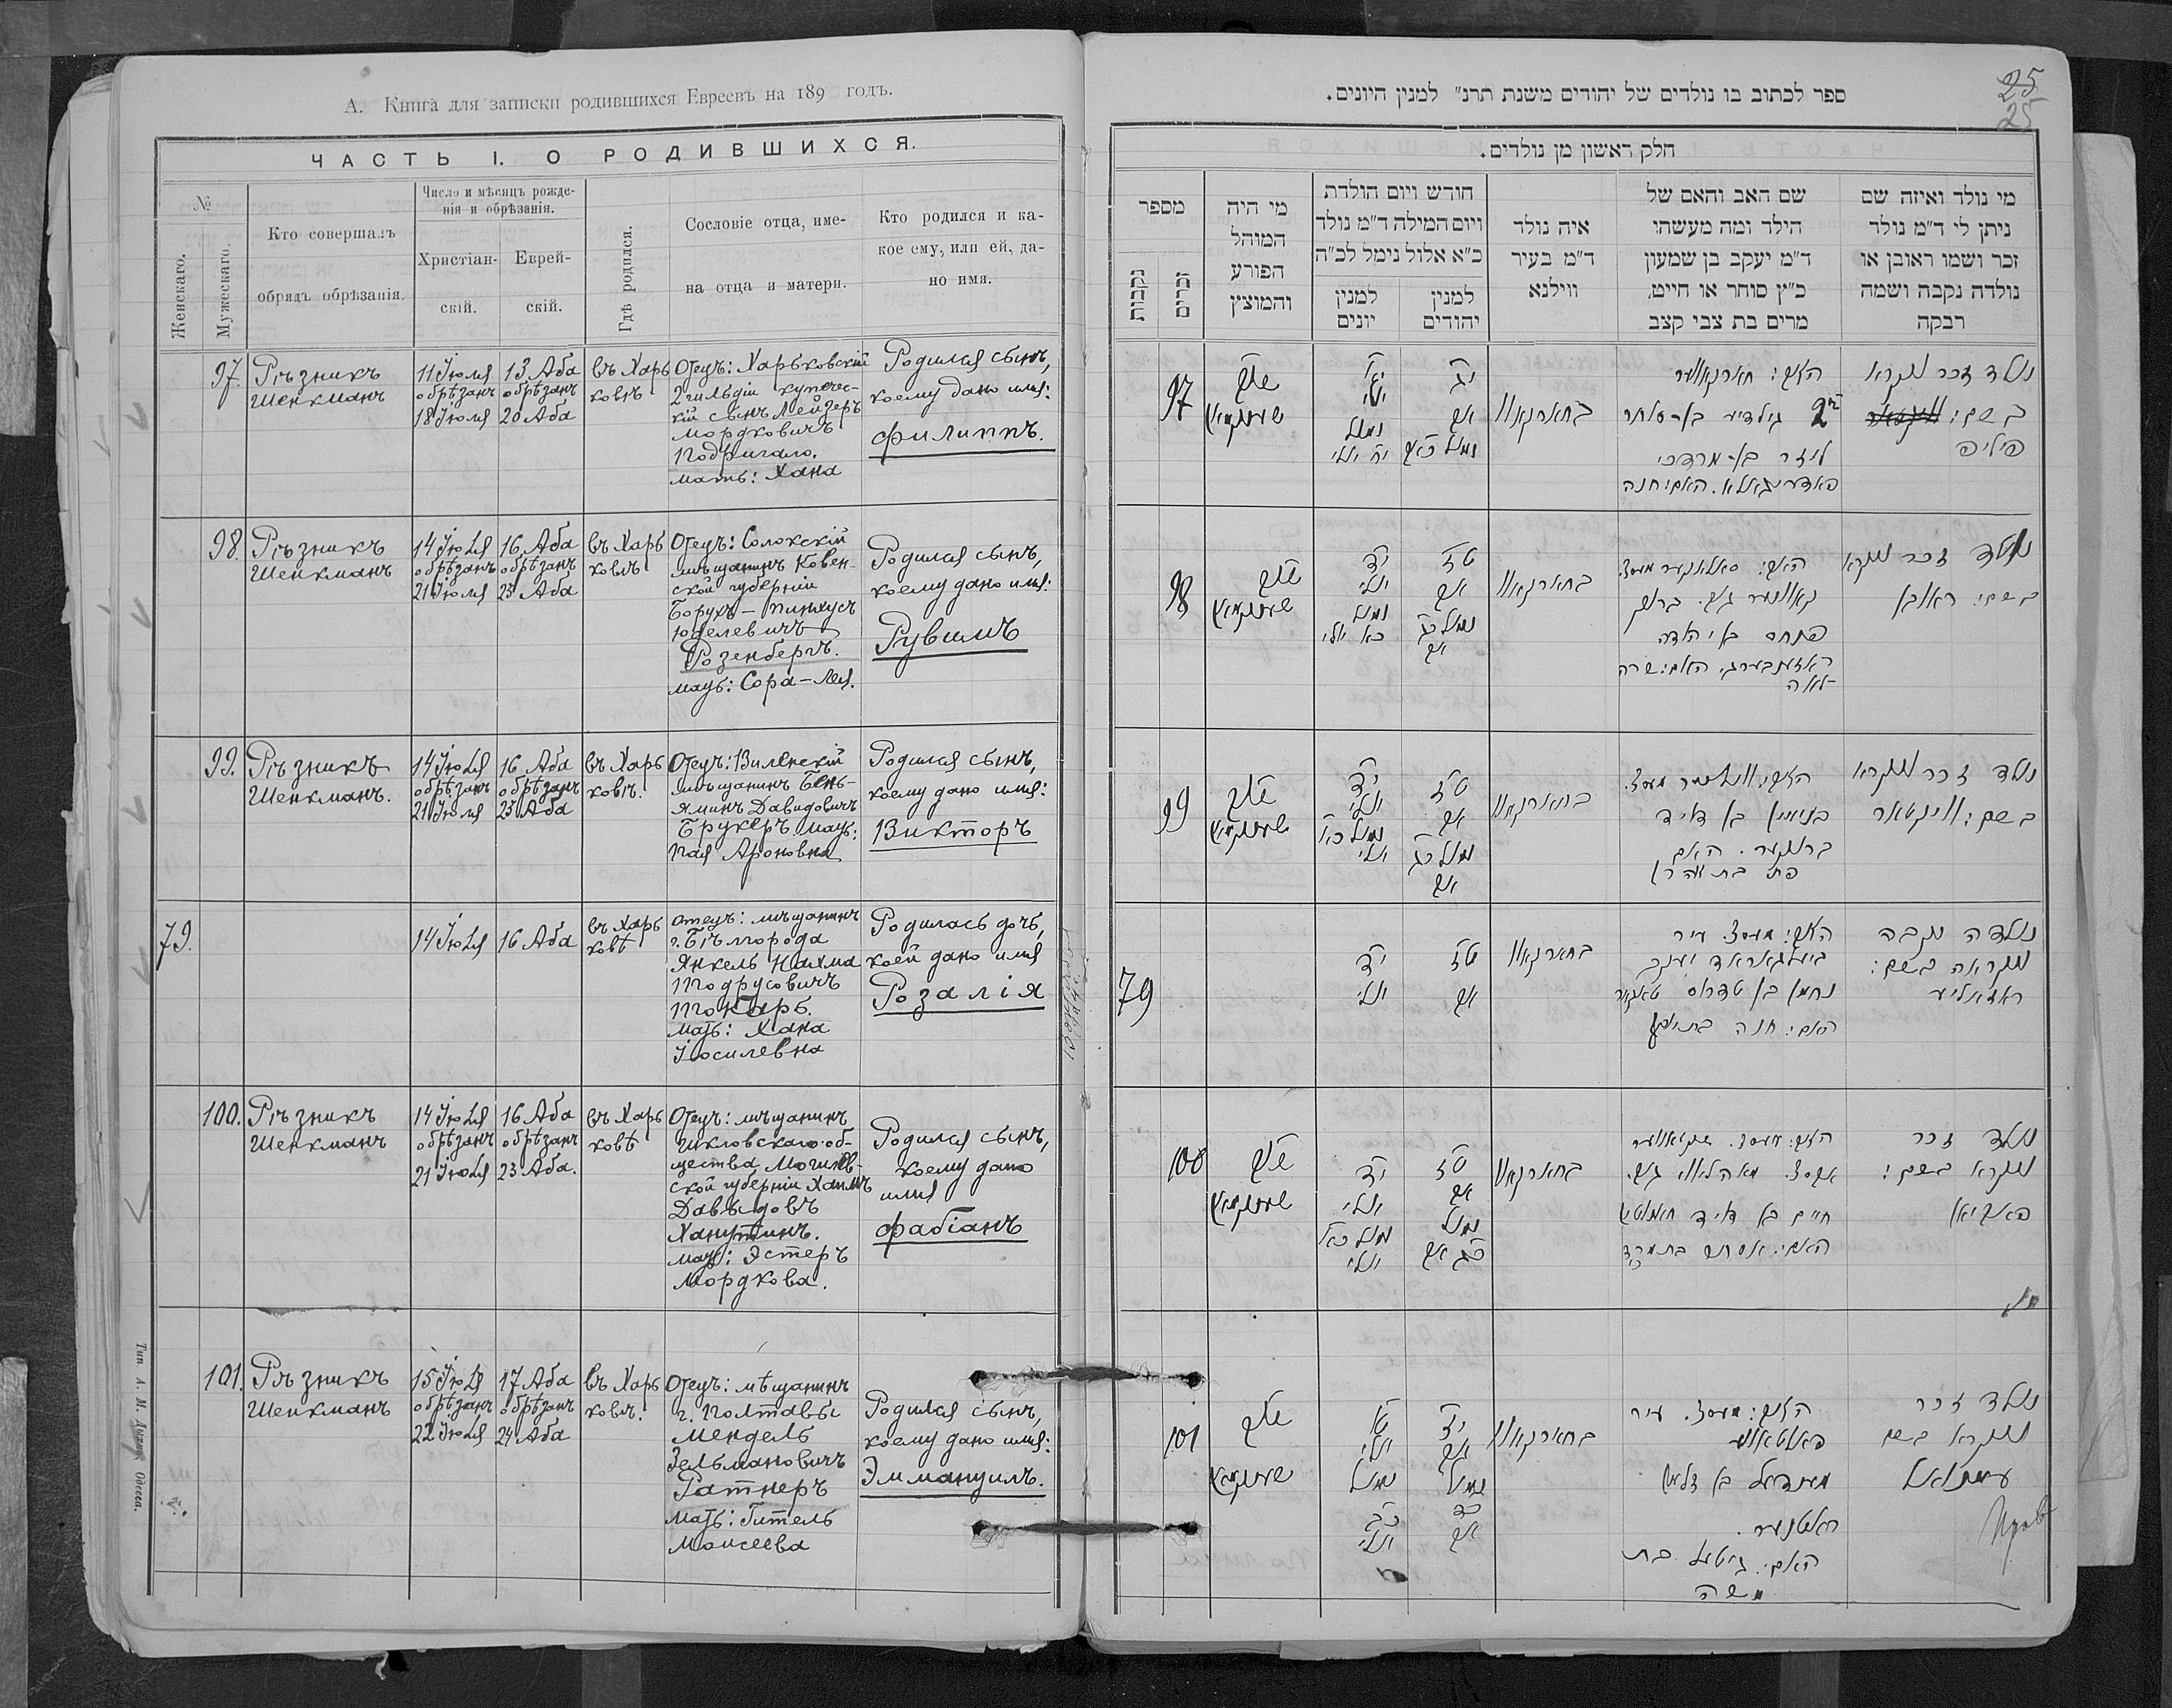 А. Книга для записки родившихся Евреевъ на 189 годъ.
ЧАСТЬ I. О РОДИВШИХСЯ.
№
Женскаго.
Мужескаго.
Кто совершалъ
обрядъ обрѣзанія.
Число и мѣсяцъ рожде-
нія и обрѣзанія.
Христіан-
скій.
Еврей-
скій.
Гдѣ родился.
Сословіе отца, име-
на отца и матери.
Кто родился и ка-
кое ему, или ей, да-
но имя.
97.
Рѣзникъ
Шенкманъ
11 Іюля
обрѣзанъ
18 Іюля
13 Аба
обрѣзанъ
20 Аба
въ Харь
ковѣ
Отецъ: Харьковскій
2 гильдіи купечес-
кій сынъ Лейзеръ
Мордковичъ
Подригало.
мать: Хана
Родился сынъ,
коему дано имя:
Филиппъ.
98.
Рѣзникъ
Шенкманъ
14 Іюля
обрѣзанъ
21 Іюля
16 Аба
обрѣзанъ
23 Аба
въ Харь
ковѣ
Отецъ: Солокскій
мѣщанинъ Ковен-
ской губерніи
Борухъ - Пинхусъ
Юделевичъ
Розенбергъ.
мать: Сора - Лея.
Родился сынъ,
коему дано имя:
Рувимъ
99.
Рѣзникъ
Шенкманъ.
14 Іюля
обрѣзанъ
21 Іюля
16 Аба
обрѣзанъ
23 Аба
въ Харь
ковѣ.
Отецъ: Виленскій
мѣщанинъ Бень-
яминъ Давидовичъ
Брукеръ мать:
Пая Ароновна
Родился сынъ,
коему дано имя:
Викторъ
79.
14 Іюля
16 Аба
въ Харь
ковѣ
отецъ: мѣщанинъ
г. Бѣлгорода
Янкель Нахма
Тодрусовичъ
Токарь.
мать: Хана
Іосилевна
Родилась дочь,
коей дано имя
Розалія
100.
Рѣзникъ
Шенкманъ
14 Іюля
обрѣзанъ
21 Іюля
16 Аба
обрѣзанъ
23 Аба.
въ Харь
ковѣ
Отецъ: мѣщанинъ
Шкловскаго об-
щества Могилев-
ской губерніи Хаимъ
Давыдовъ
Ханутинъ.
мать: Эстеръ
Мордкова.
Родился сынъ,
коему дано
имя
Фабіанъ
101.
Рѣзникъ
Шенкманъ
15 Іюля
обрѣзанъ
22 Іюля
17 Аба
обрѣзанъ
24 Аба
въ Харь
ковѣ.
Отецъ: мѣщанинъ
г. Полтавы
Мендель
Зельмановичъ
Ратнеръ
мать: Гитель
Моисеева
Родился сынъ,
коему дано имя:
Эммануилъ.
Тип. А. М. Дыхно, Одесса.
25
25
ספר לכתוב בו נולדים של יהודים משנת תרנ״ למנין היונים.
חלק ראשון מן נולדים.
מי נולד ואיזה שם
ניתן לי ד״מ נולד
זכר ושמו ראובן או
נולדה נקבה ושמה
רבקה
שם האב והאם של
הילד ומה מעשהו
ד״מ יעקב בן שמעון
כ״ץ סוחר או חייט,
מרים בת צבי קצב
איה נולד
ד״מ בעיר
ווילנא
חודש ויום הולדת
ויום המילה ד״מ נולד
כ״א אלול נימל לכ״ה
למנין
יהודים
למנין
יונים
מי היה
המוהל
הפורע
והמוצץ
מספר
זכרים
נקבות
נולד זכר ונקרא
בשם:
פיליפ
האב: חארקאווער
2 גילדיע בן סוחר
ליזר בן מרדכי
פאדריגאלא. האם: חנה
בחארקאוו
יג
אב
נמול כ אב
יא
יולי
נמול
יח יולי
שוב
שענקמאן
97
נולד זכר ונקרא
בשם: ראובן
האב: סאלאקער מעסצ.
קאוונער גוב. ברוך
פנחס בן יהודה
ראזענבערג. האם: שרה
לאה
בחארקאוו
טז
אב
נמול כג
אב
יד
יולי
נמול
כא יולי
שוב
שענקמאן
98
נולד זכר ונקרא
בשם: וויקטאר
האב: ווילנער מעסצ.
בנימין בן דוד
ברוקער. האם
בחארקאוו
טז
אב
נמול כג
אב
יד
יולי
נמול כא
יולי
שוב
שענקמאן
99
נולדה נקבה
ונקראה בשם:
ראזאליע
האב: מעסצ. עיר
בעלגאראד יענקל
נחמן בן טדרוס טאקאר
האם: חנה בת יוסף
בחארקאוו
טז
אב
יד
יולי
79
נולד זכר
ונקרא בשם:
פאביאן
האב: מעסצ. שקלאווער
אבסצ. מאהליווו גוב.
חיים בן דוד חאנוטין
האם: אסתר בת מרדכי
בחארקאוו
טז
אב
נמול
כג אב
יד
יולי
נמול כא
יולי
שוב
שענקמאן
100
נולד זכר
ונקרא בשם
עמנואל
האב: מעסצ. עיר
פאלטאווע
מענדעל בן זלמן
ראטנער.
האם: גיטעל בת
משה
בחארקאוו
יז
אב
נמול
כד
אב
טו
יולי
נמול
כב
יולי
שוב
שענקמאן
101